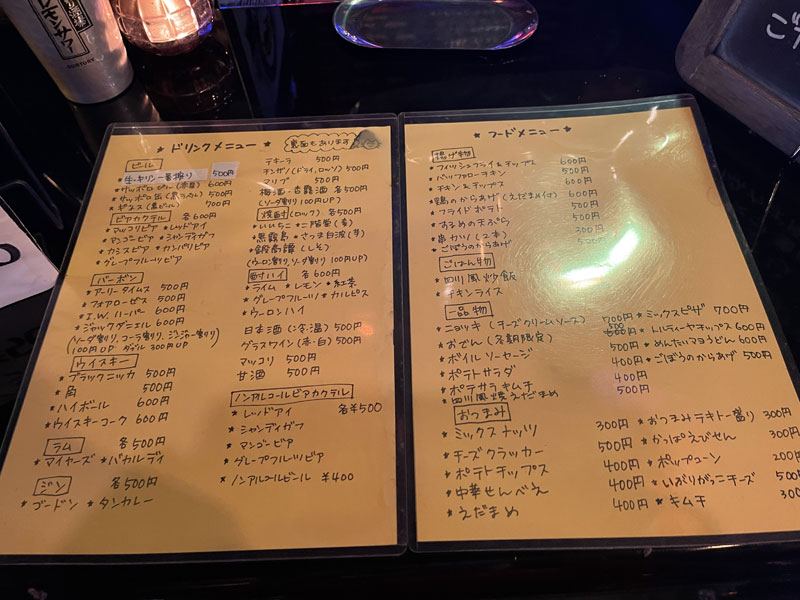 レモンサワー
SUNTORY
ご
★ ドリンクメニュー ★
裏面もあります
ビール
★生・キリン一番搾り 500円
★サッポロ ビん(赤星) 600円
★サッポロ 缶(黒ラベル) 500円
★ギネス(黒ビール) 700円
ビアカクテル 各600円
★マッコリビア ★レッドアイ
★マンゴービア ★シャンディガフ
★カシスビア ★カンパリビア
★グレープフルーツビア
バーボン
★アーリータイムス 500円
★フォアローゼス 500円
★I.W.ハーパー 600円
★ジャックダニエル 600円
(ソーダ割り、コーラ割り、ジンジャー割り)
100円UP ダブル 300円UP
ウイスキー
★ブラックニッカ 500円
★角 500円
★ハイボール 600円
★ウイスキーコーク 600円
ラム 各500円
★マイヤーズ ★バカルディ
ジン 各500円
★ゴードン ★タンカレー
テキーラ 500円
チンザノ(ドライ、ロッソ) 500円
マリブ 500円
梅酒・杏露酒 各500円
(ソーダ割り 100円UP)
焼酎(ロック) 各500円
★いいちこ ★二階堂(麦)
★黒霧島 ★さつま白波(芋)
★鍛高譚(しそ)
(ウーロン割り、ソーダ割り 100円UP)
酎ハイ 各600円
★ライム ★レモン ★紅茶
★グレープフルーツ ★カルピス
★ウーロンハイ
日本酒(冷・温) 500円
グラスワイン(赤・白) 500円
マッコリ 500円
甘酒 500円
ノンアルコールビアカクテル
★レッドアイ 各¥500
★シャンディガフ
★マンゴービア
★グレープフルーツビア
★ノンアルコールビール ¥400
★ フードメニュー ★
揚げ物
★フィッシュフライ&チップス 600円
★バッファローチキン 500円
★チキン&チップス 600円
★鶏のからあげ(えだまめ付) 600円
★フライドポテト 500円
★するめの天ぷら 500円
★串カツ(2本) 300円
★ごぼうのからあげ 500円
ごはん物
★四川風炒飯
チキンライス
一品物
★ニョッキ(チーズクリームソース) 700円 ★ミックスピザ 700円
★おでん(冬期限定) 500 ★トルティーヤチップス 600円
★ボイルソーセージ 500円 ★めんたいマヨうどん 600円
★ポテトサラダ 400円 ★ごぼうのからあげ 500円
★ポテサラキムチ 400円
★四川風焼えだまめ 500円
おつまみ
★ミックスナッツ 300円 ★おつまみテキトー盛り 300円
★チーズクラッカー 500円 ★かっぱえびせん 300円
★ポテトチップス 400円 ★ポップコーン 200円
★中華せんべえ 400円 ★いぶりがっこチーズ 500円
★えだまめ 400円 ★キムチ 300